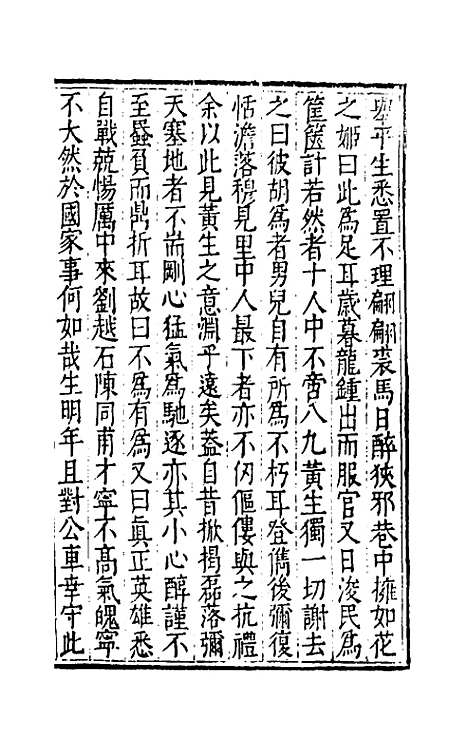 舉平生悉置不理翩翩裘馬日醉狹邪巷中擁如花
之姬曰此為足耳歲暮龍鍾出而服官又日浚民為
筐篋計若然者十人中不啻八九黃生獨一切謝去
之曰彼胡為者男兒自有所為不朽耳登儁後彌復
恬澹落穆見里中人最下者亦不仭傴僂與之抗禮
余以此見黃生之意淵乎遠矣葢自昔掀揭磊落彌
天塞地者不耑剛心猛氣為馳逐亦其小心醇謹不
至蟁負而鼎折耳故曰不為有為又曰眞正英雄悉
自戰兢惕厲中來劉越石陳同甫才寧不高氣魄寧
不大然於國家事何如哉生明年且對公車幸守此